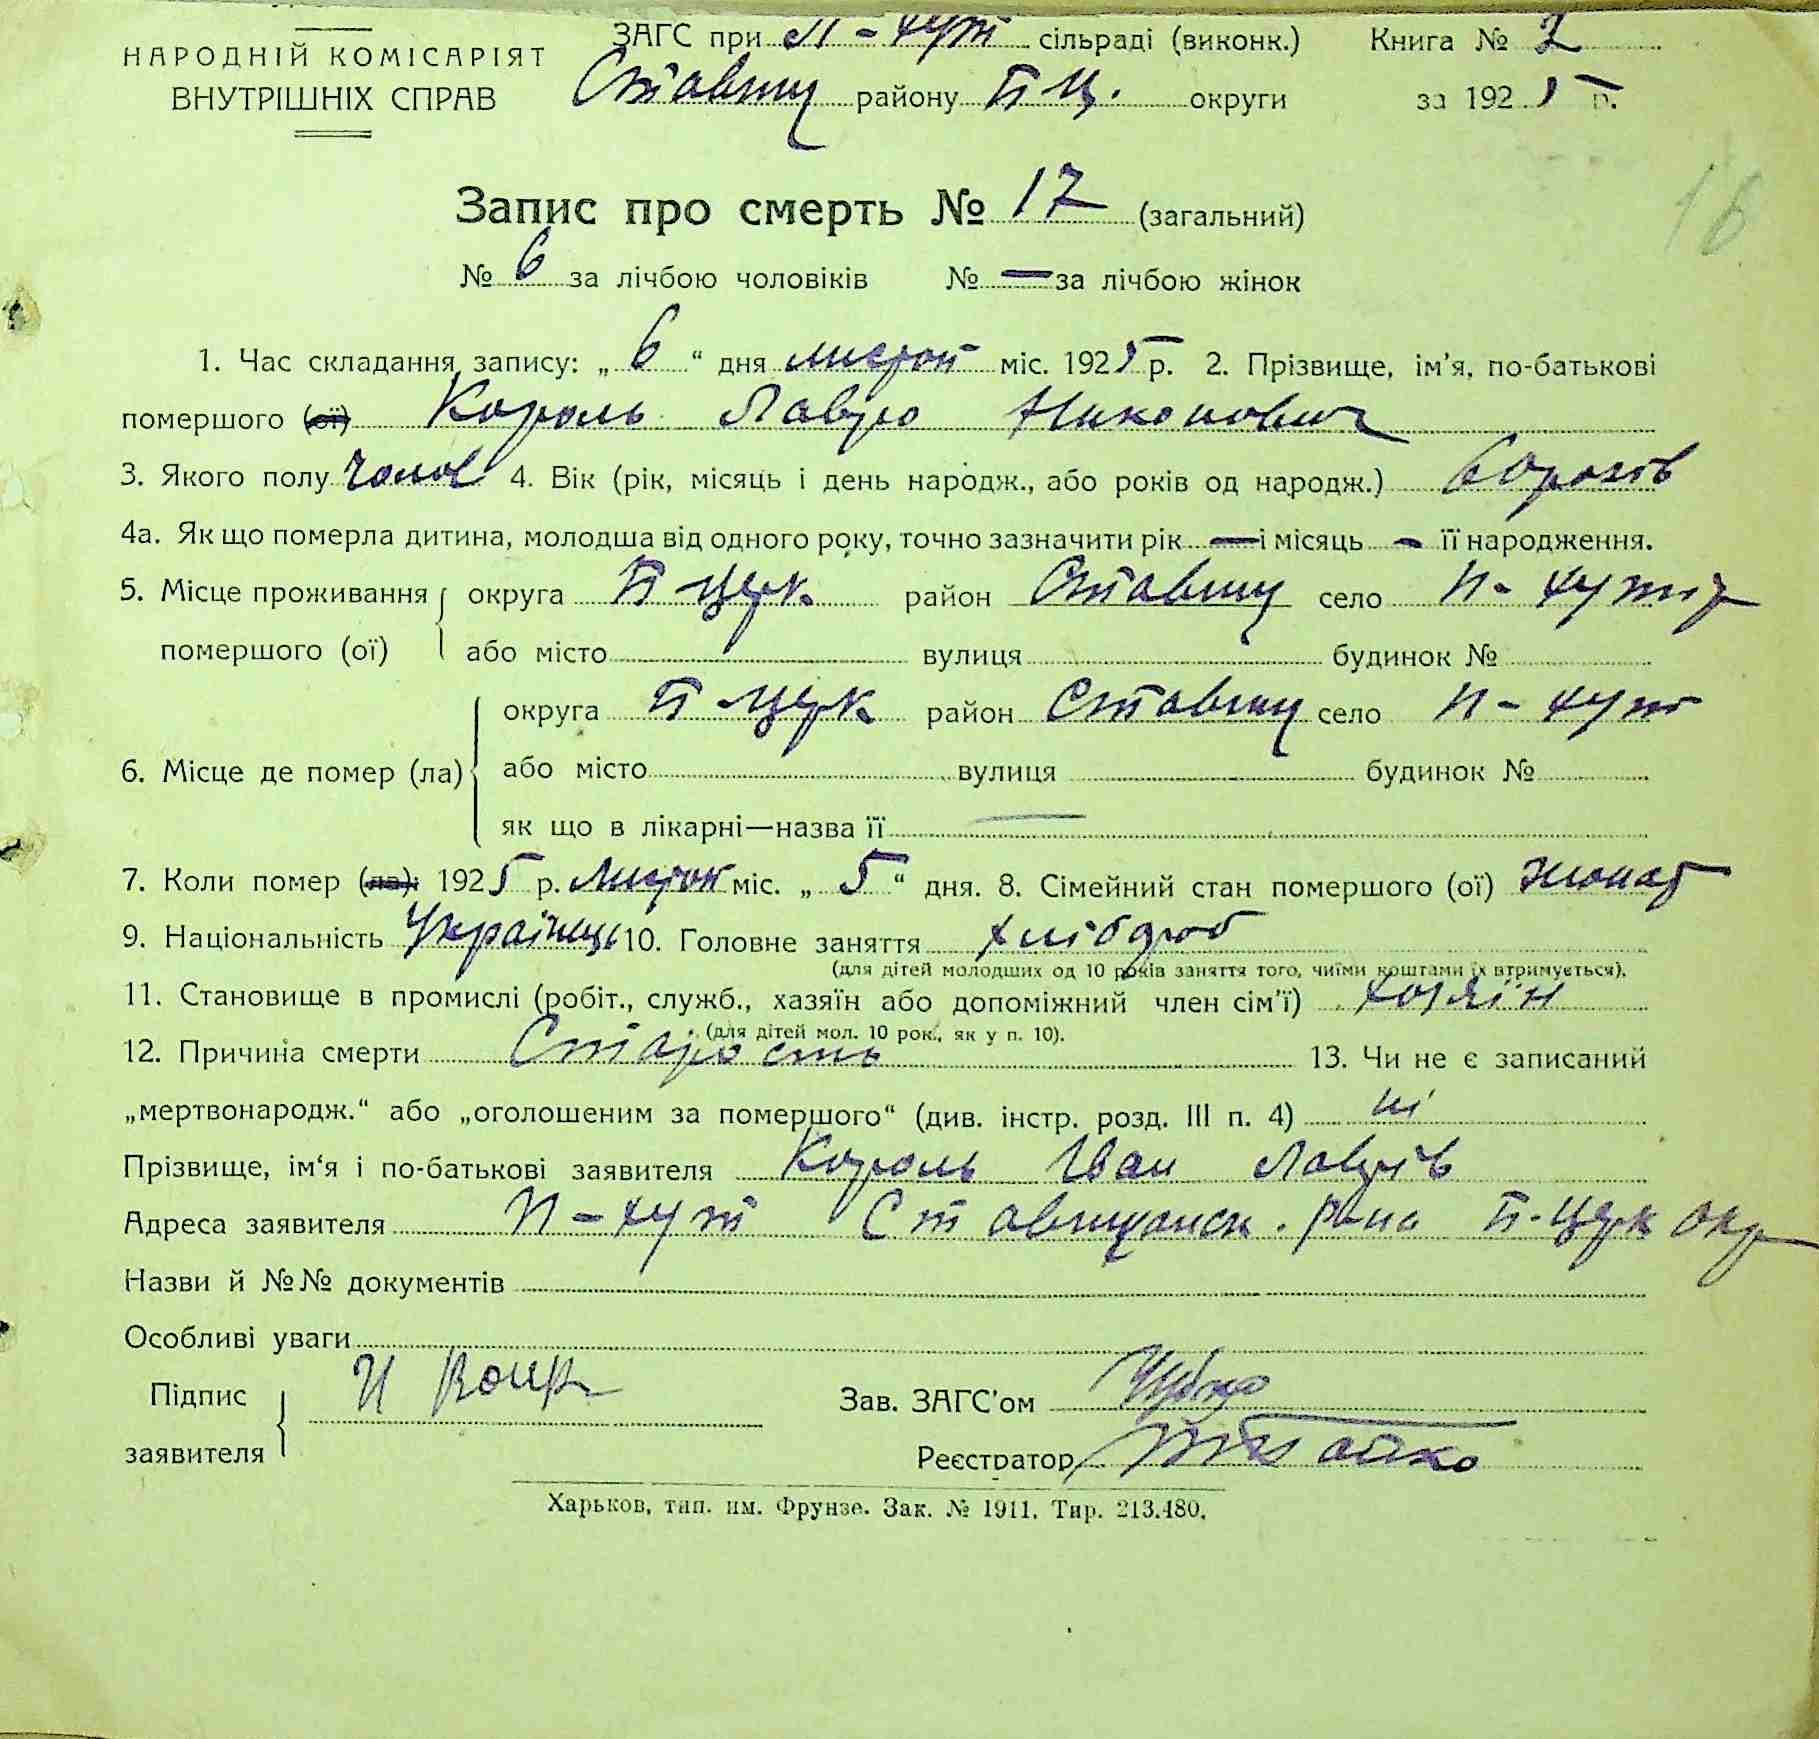 ЗАГС при П-хут сільраді (виконк.) Книга № 2
НАРОДНІЙ КОМІСАРІЯТ
ВНУТРІШНІХ СПРАВ
Ставищ району Б Ц. округи за 1925 р.
16
Запис про смерть № 17 (загальний)
№ 6 за лічбою чоловіків № — за лічбою жінок
1. Час складання запису: „ 6 “ дня листоп міс. 1925 р. 2. Прізвище, ім'я, по-батькові
помершого (ої) Король Лавро Никонович
3. Якого полу чолов 4. Вік (рік, місяць і день народж., або років од народж.) 60 років
4а. Як що померла дитина, молодша від одного року, точно зазначити рік — і місяць - її народження.
5. Місце проживання округа Б Церк. район Ставищ село П-хутір
помершого (ої) або місто вулиця будинок №
округа Б Церк район Ставищ село П-хут
6. Місце де помер (ла) або місто вулиця будинок №
як що в лікарні—назва її —
7. Коли помер (ла): 1925 р. Листоп міс. „ 5 “ дня. 8. Сімейний стан помершого (ої) жонат
9. Національність Українець 10. Головне заняття хлібороб
(для дітей молодших од 10 років заняття того, чиїми коштами їх втримується).
11. Становище в промислі (робіт., служб., хазяїн або допоміжний член сім'ї) хозяїн
(для дітей мол. 10 рок., як у п. 10).
12. Причина смерти Старость 13. Чи не є записаний
„мертвонародж.“ або „оголошеним за помершого“ (див. інстр. розд. III п. 4) ні
Прізвище, ім'я і по-батькові заявителя Король Іван Лаврів
Адреса заявителя П-хут Ставищанск. рана Б-Церк окр
Назви й №№ документів
Особливі уваги
Підпис И
заявителя
Зав. ЗАГС'ом
Реєстратор
Харьков, тип. им. Фрунзе. Зак. № 1911. Тир. 213.480.